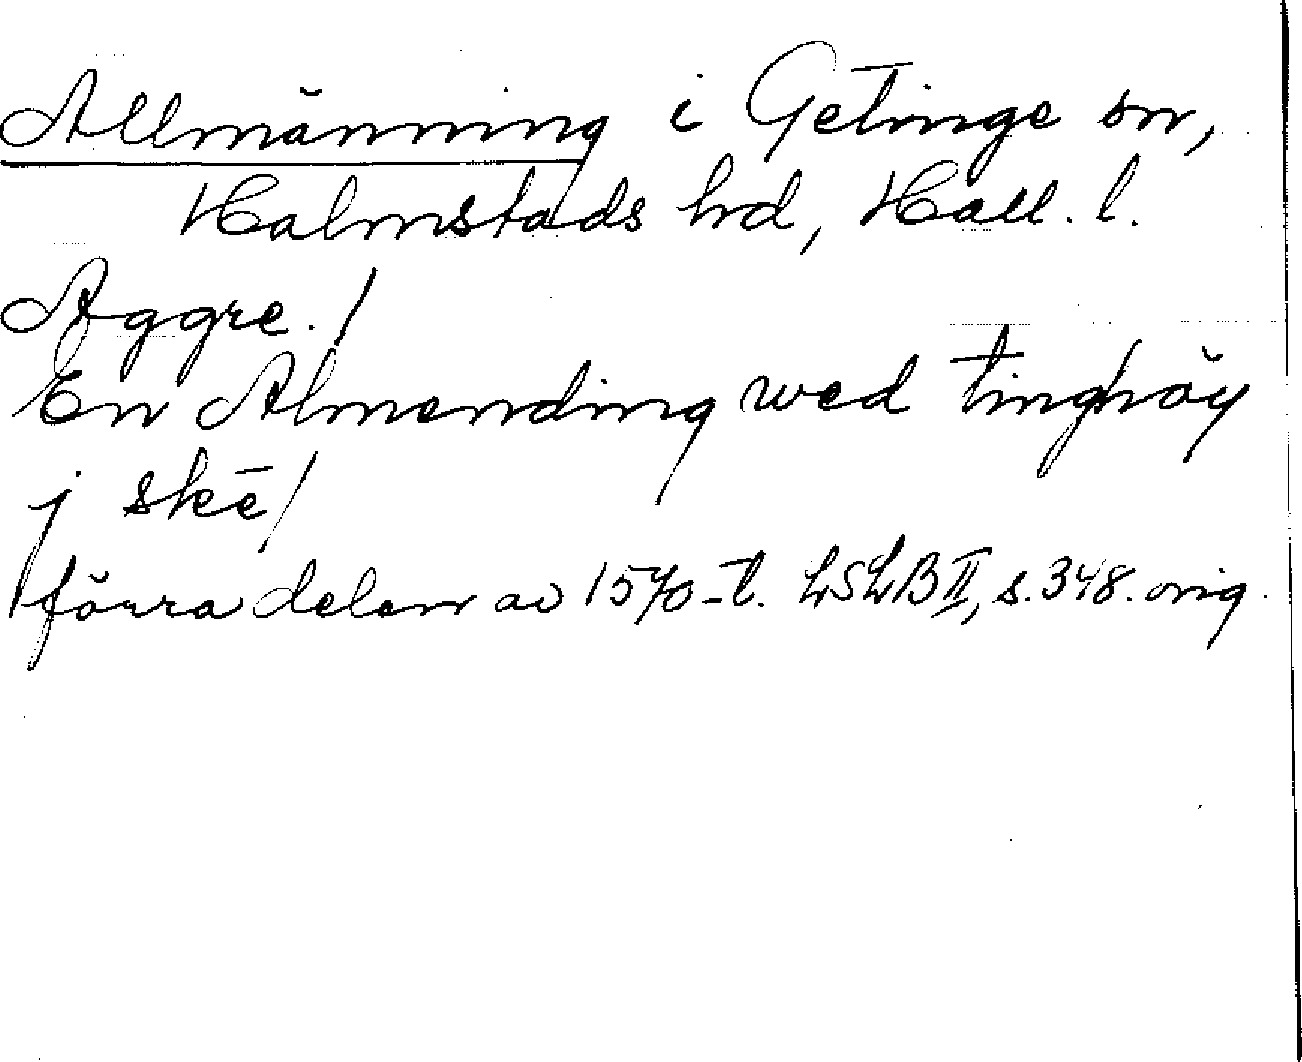 Allmänning i Getinge sn,
Halmstads hd, Hall. l.
Aggre./
En Almending wed tinghöy
j skē/
förra delen av 1570-t. LSLB II, s. 348. orig.